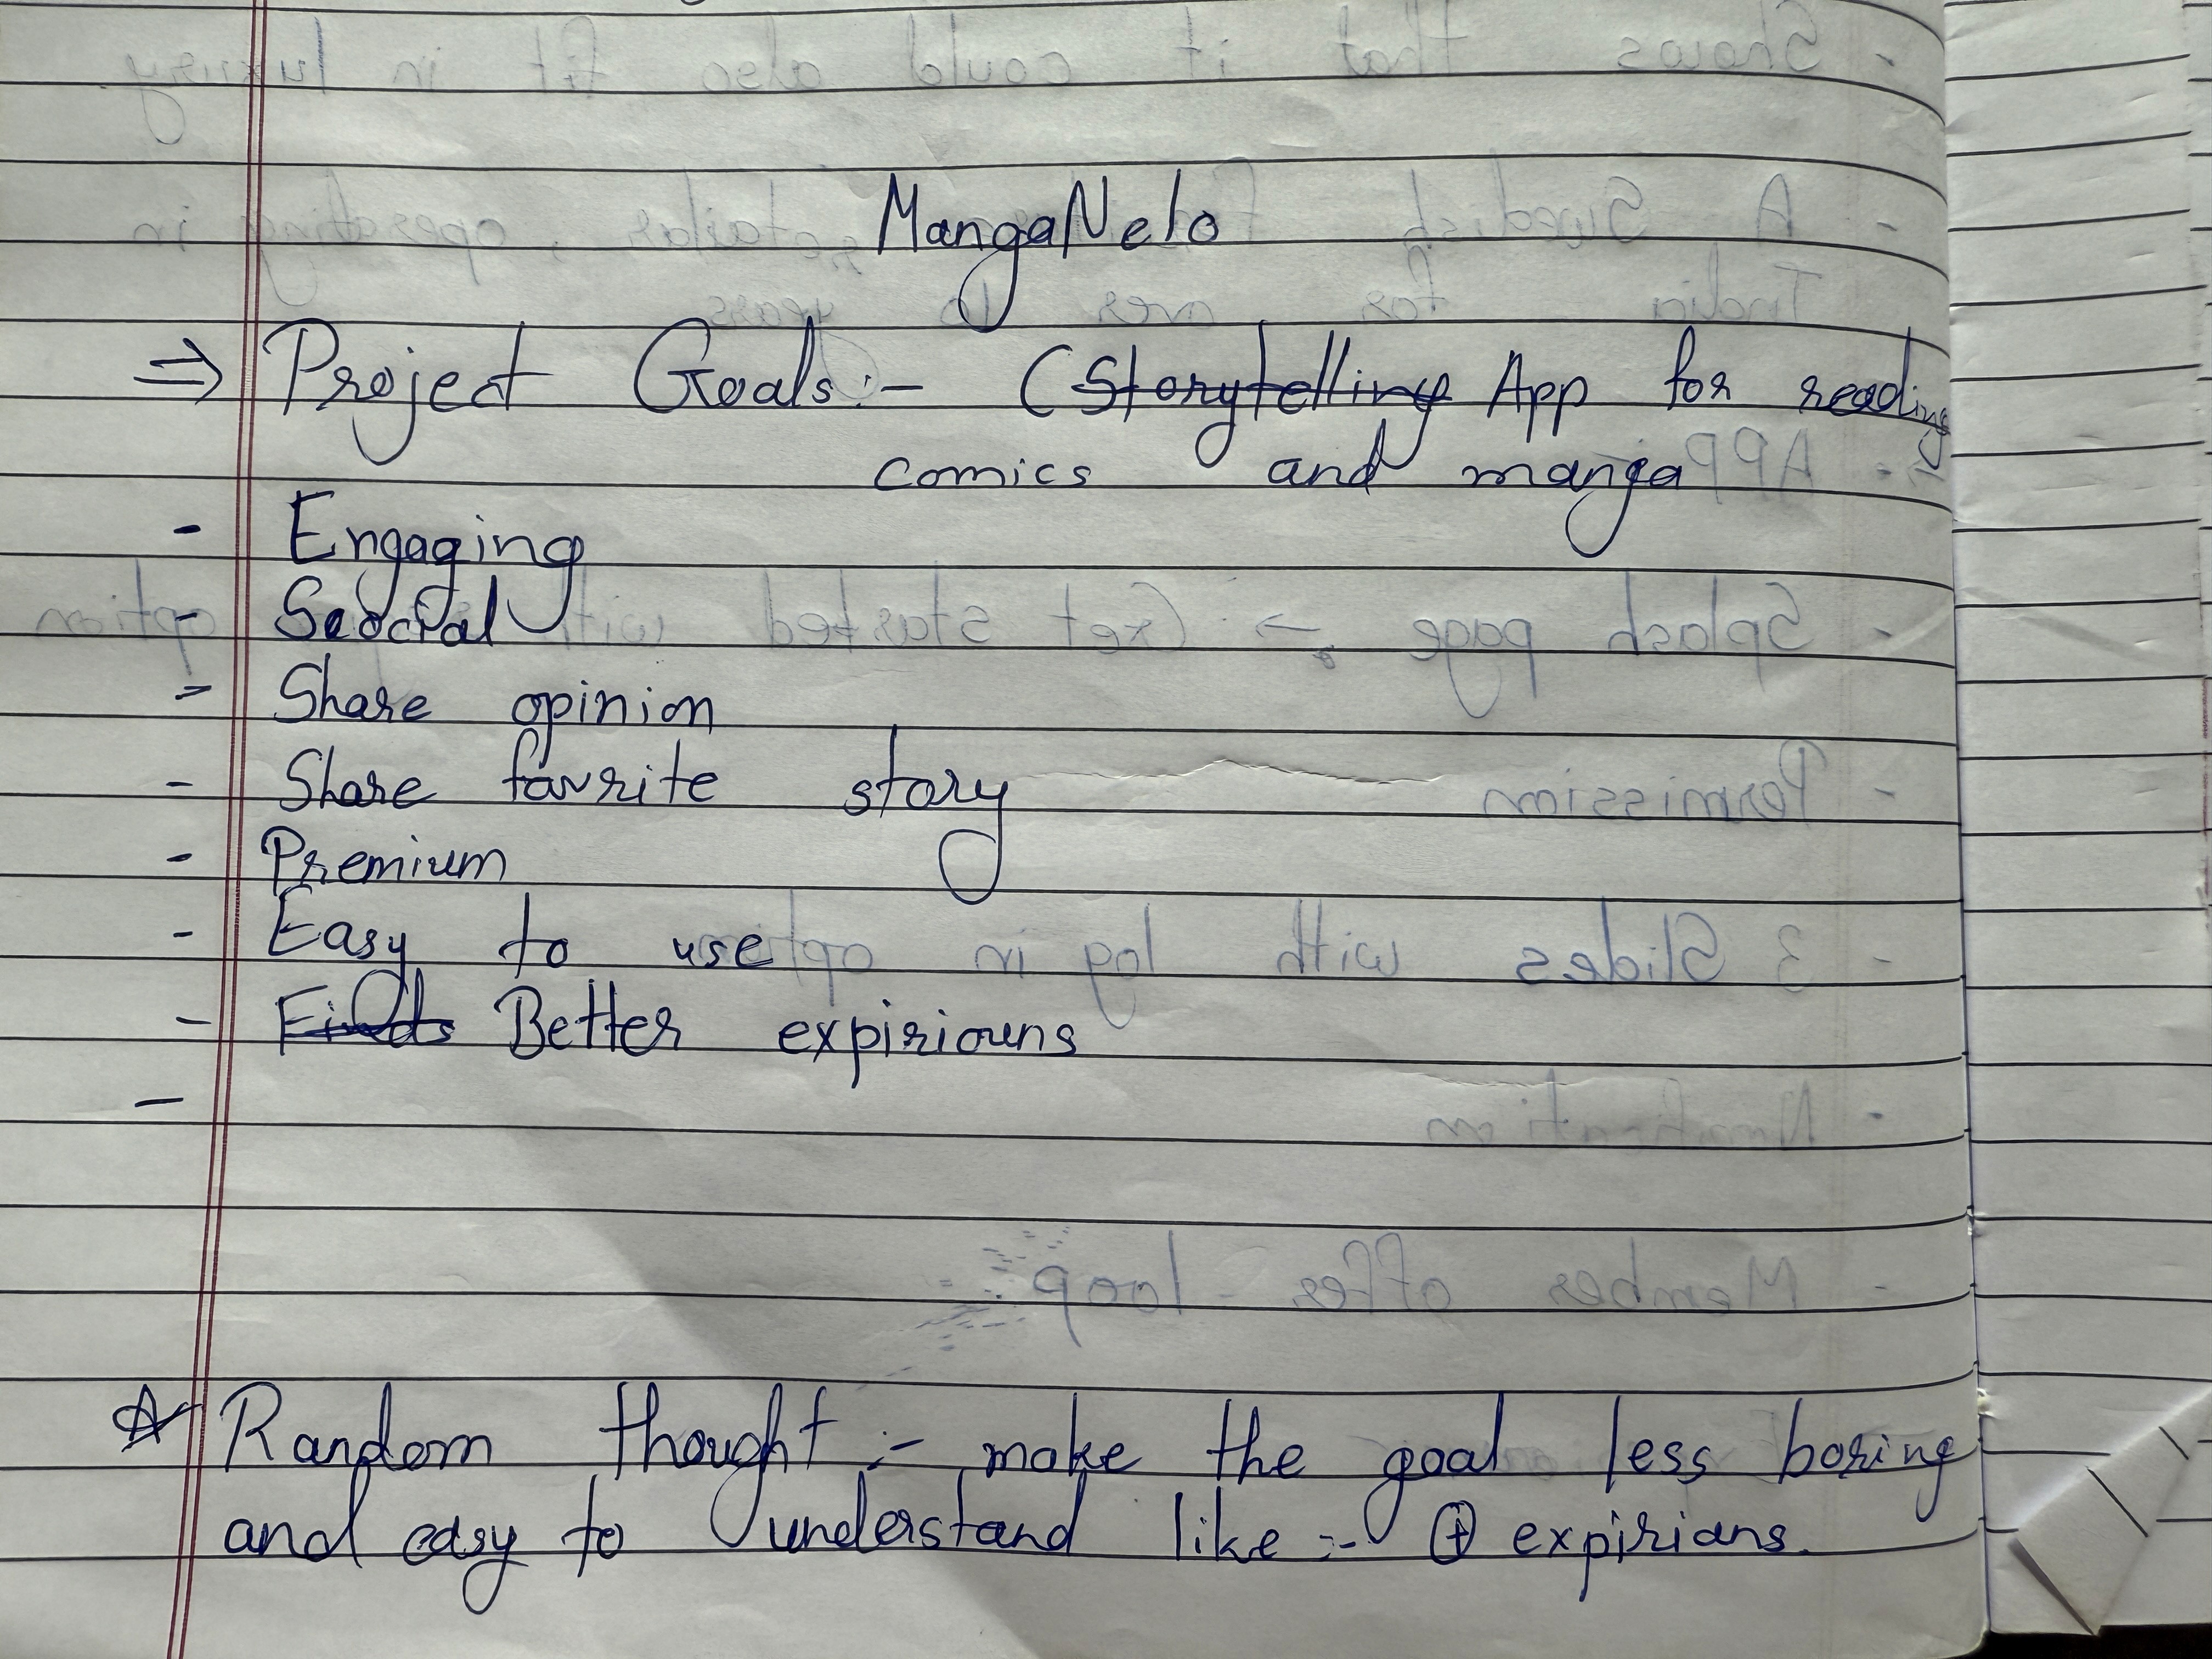 MangaNelo
⇒ Project Goals :- (~~Storytelling~~ App for reading
comics and manga
- Engaging
- Social
- Share opinion
- Share favrite story
- Premium
- Easy to use
- ~~Finds~~ Better expiriouns
-
☆ Random thought :- make the goal less boring
and easy to understand like :- ⊕ expirians.